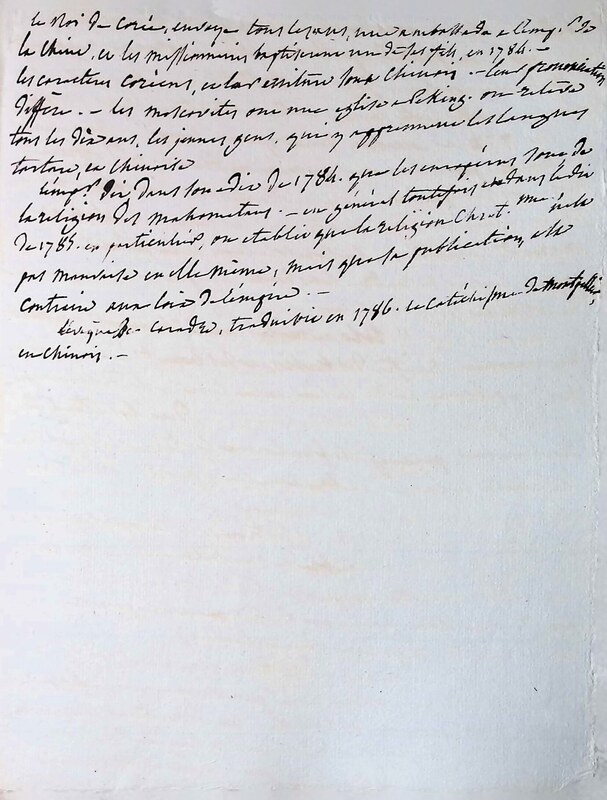 le Roi de corée, envoye tous les ans, une ambassade a l'emp.r de
la Chine, et les missionaires baptiserent un de ses fils, en 1784. —
les caracteres coréens, et leur ecriture sont chinois. — leur prononciation
differe. — les moscovites ont une eglise a Peking. on releve
tous les dix ans, les jeunes gens, qui y apprennent les langues
tartare, et chinoise
l'emp.r dit, dans son edit de 1784. que les européens sont de
la religion des mahometans. — en général dans l'edit
de 1785. en particulier, on etablit que la religion Chret.nne n'est
pas mauvaise en elle même, mais que la publication, est
contraire aux loix de l'empire. —
l'eveque de caradre, traduisit en 1786. le Catéchisme de Montpellier,
en Chinois. —